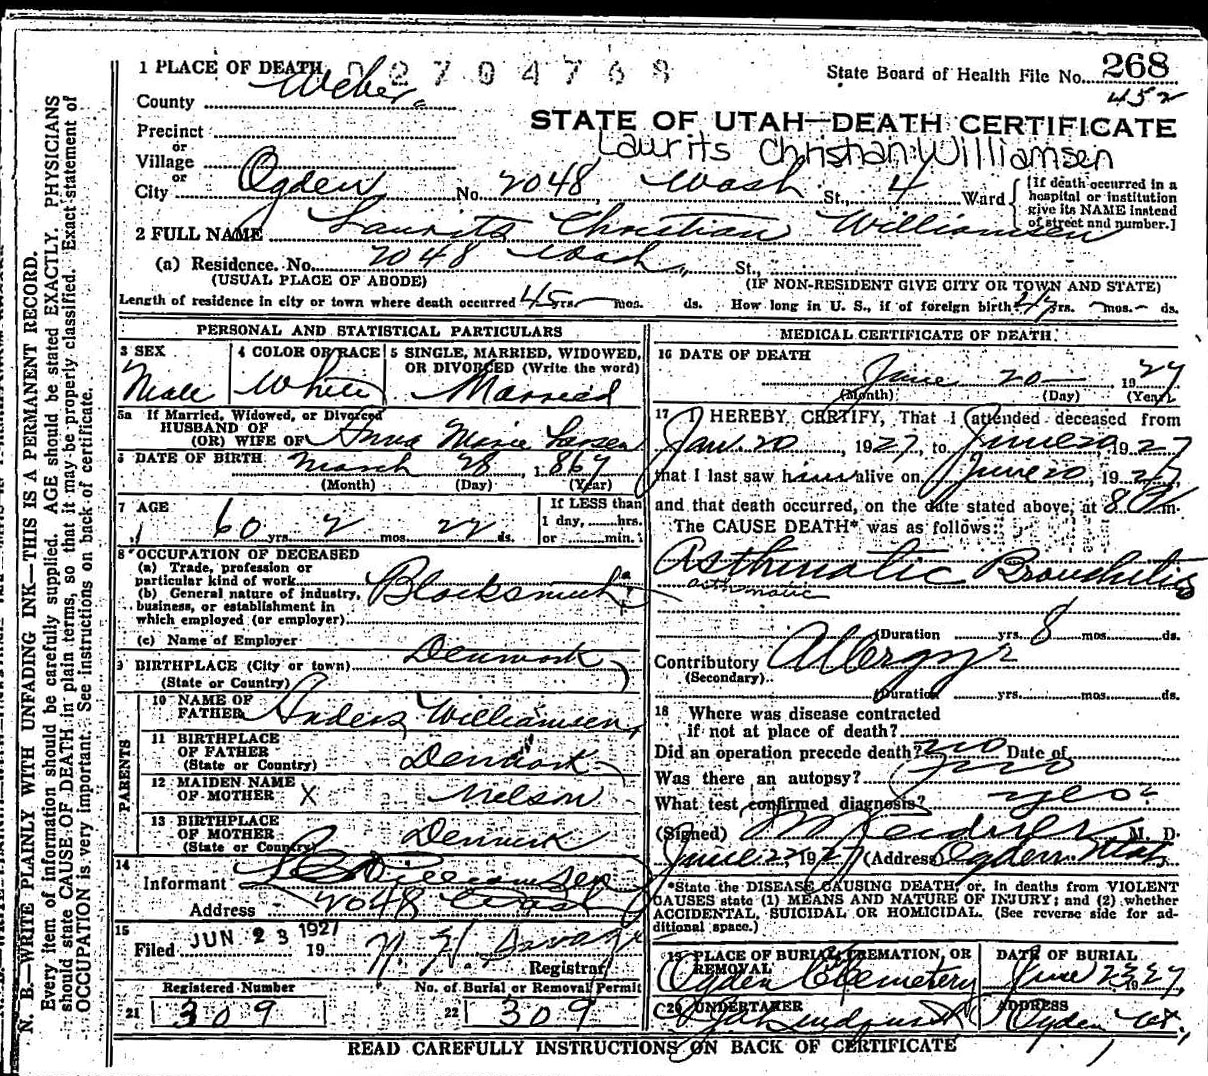 1 PLACE OF DEATH 02704768
State Board of Health File No. 268
452
County Weber
STATE OF UTAH—DEATH CERTIFICATE
Laurits Christian Williamsen
Precinct
or
Village
or
City Ogden No. 2048 Wash St., 4 Ward
[If death occurred in a
hospital or institution
give its NAME instead
of street and number.]
2 FULL NAME Laurits Christian Williamsen
(a) Residence. No. 2048 Wash St.,
(USUAL PLACE OF ABODE) (IF NON-RESIDENT GIVE CITY OR TOWN AND STATE)
Length of residence in city or town where death occurred 45 yrs. mos. ds. How long in U. S., if of foreign birth 47 yrs. mos. ds.
PERSONAL AND STATISTICAL PARTICULARS
3 SEX
Male
4 COLOR OR RACE
White
5 SINGLE, MARRIED, WIDOWED,
OR DIVORCED (Write the word)
Married
5a If Married, Widowed, or Divorced
HUSBAND OF
(OR) WIFE OF Anna Marie Larsen
6 DATE OF BIRTH March 28, 1867
(Month) (Day) (Year)
7 AGE
60 yrs. 2 mos. 22 ds.
If LESS than
1 day, hrs.
or min.
8 OCCUPATION OF DECEASED
(a) Trade, profession or
particular kind of work Blacksmith
(b) General nature of industry,
business, or establishment in
which employed (or employer)
(c) Name of Employer
9 BIRTHPLACE (City or town) Denmark
(State or Country)
PARENTS
10 NAME OF
FATHER Anders Williamsen
11 BIRTHPLACE
OF FATHER Denmark
(State or Country)
12 MAIDEN NAME
OF MOTHER X Nelson
13 BIRTHPLACE
OF MOTHER Denmark
(State or Country)
14
Informant L C Williamsen
Address 2048 Wash
15
Filed JUN 23 1927 19
Registrar
Registered Number
21 309
No. of Burial or Removal Permit
22 309
MEDICAL CERTIFICATE OF DEATH
16 DATE OF DEATH
June 20 1927
(Month) (Day) (Year)
17 I HEREBY CERTIFY, That I attended deceased from
Jan. 20, 1927, to June 20, 1927
that I last saw him alive on June 20, 1927,
and that death occurred, on the date stated above, at 8 m.
The CAUSE DEATH* was as follows:
Asthmatic Bronchitis
asthmatic
(Duration yrs. 8 mos. ds.
Contributory Allergy
(Secondary)
(Duration yrs. mos. ds.
18 Where was disease contracted
if not at place of death?
Did an operation precede death? no Date of
Was there an autopsy? no
What test confirmed diagnosis? yes
(Signed) M. D.
June 22 1927 (Address) Ogden Utah
*State the DISEASE CAUSING DEATH; or, in deaths from VIOLENT
CAUSES state (1) MEANS AND NATURE OF INJURY; and (2) whether
ACCIDENTAL, SUICIDAL OR HOMICIDAL. (See reverse side for ad-
ditional space.)
19 PLACE OF BURIAL, CREMATION, OR
REMOVAL
Ogden Cemetery
DATE OF BURIAL
June 23 1927
20 UNDERTAKER
Lindquist
ADDRESS
Ogden Ut.
READ CAREFULLY INSTRUCTIONS ON BACK OF CERTIFICATE
N. B.—WRITE PLAINLY WITH UNFADING INK—THIS IS A PERMANENT RECORD.
Every item of information should be carefully supplied. AGE should be stated EXACTLY. PHYSICIANS
should state CAUSE OF DEATH in plain terms, so that it may be properly classified. Exact statement of
OCCUPATION is very important. See instructions on back of certificate.